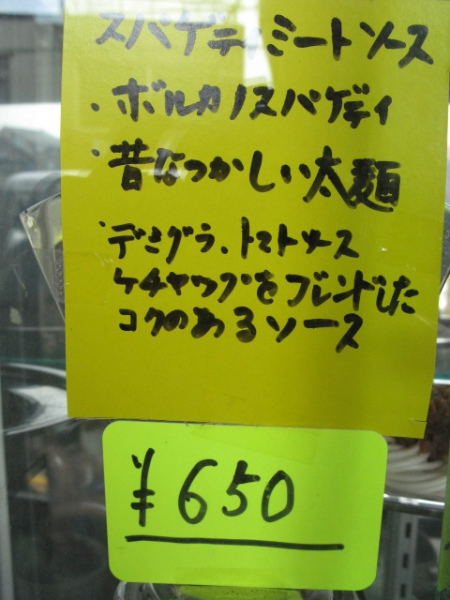 スパゲティミートソース
・ボルカノスパゲティ
・昔なつかしい太麺
・デミグラ、トマトソース
ケチャップをブレンドした
コクのあるソース
¥650